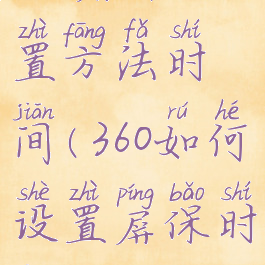 zhì fāng fǎ shí
置方法时
jiān rú hé
间(360如何
shè zhì píng bǎo shí
设置屏保时